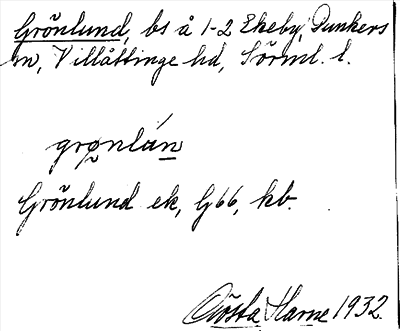 Grönlund, bs å 1-2 Ekeby, Dunkers
sn, Villåttinge hd, Sörml. l.
grǫnlán
Grönlund ek, G66, kb.
Gösta Harne 1932.